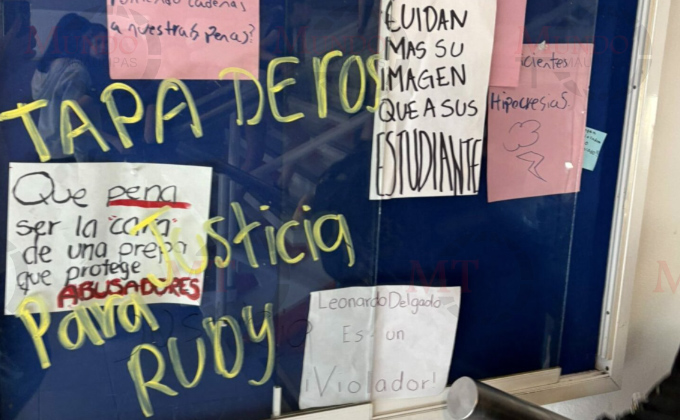 a nuestras penas?
CUIDAN
MAS SU
IMAGEN
QUE A SUS
ESTUDIANTE
cientes
Hipocresias
TAPADEROS
Que pena
ser la "cara"
de una prepa
que protege
ABUSADORES
Justicia
Para
RUDY
Leonardo Delgado
Es un
¡Violador!
MT